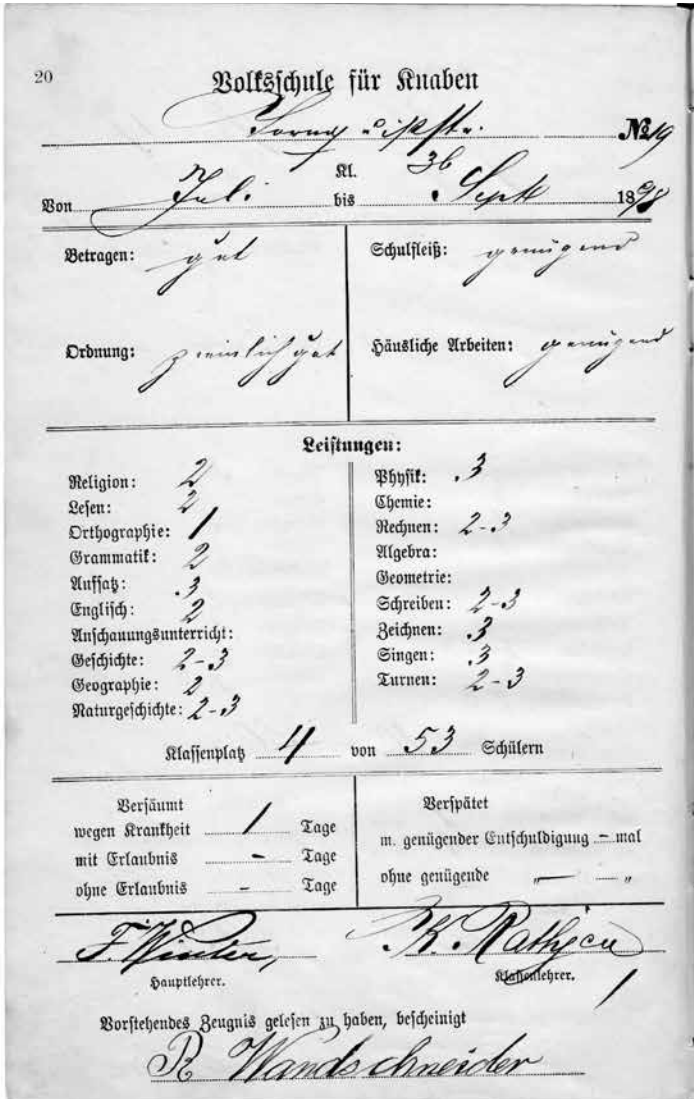 20
Volksschule für Knaben
No 19
Kl. 3b
Von Juli bis Sept 1898
Betragen: gut
Schulfleiß: genügend
Ordnung: ziemlich gut
Häusliche Arbeiten: genügend
Leistungen:
Religion: 2
Lesen: 2
Orthographie: 1
Grammatik: 2
Aufsatz: 3
Englisch: 2
Anschauungsunterricht:
Geschichte: 2-3
Geographie: 2
Naturgeschichte: 2-3
Physik: 3
Chemie:
Rechnen: 2-3
Algebra:
Geometrie:
Schreiben: 2-3
Zeichnen: 3
Singen: 3
Turnen: 2-3
Klassenplatz 4 von 53 Schülern
Versäumt
wegen Krankheit 1 Tage
mit Erlaubnis - Tage
ohne Erlaubnis - Tage
Verspätet
m. genügender Entschuldigung - mal
ohne genügende „ - „
F. Winter,
Hauptlehrer.
K. Rathgen
Klassenlehrer.
Vorstehendes Zeugnis gelesen zu haben, bescheinigt
R Wandschneider